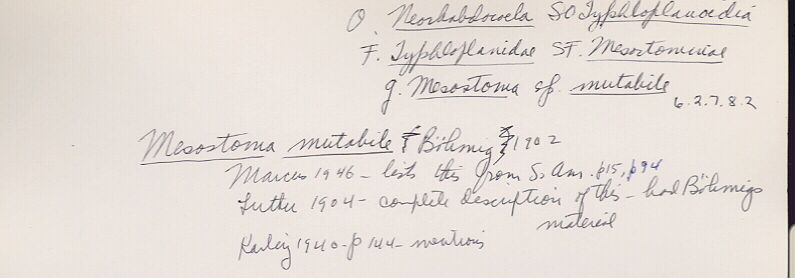 O. Neorhabdocoela SO Typhloplanoidia
F. Typhloplanidae SF. Mesostominae
g. Mesostoma sp. mutabile
6.2.7.8.2
Mesostoma mutabile { Böhmig } 1902
Marcus 1946 - lists this from S. Am. p15, p94
Luther 1904 - complete description of this - had Böhmigs
material
Karling 1940 - p 144 - mentions